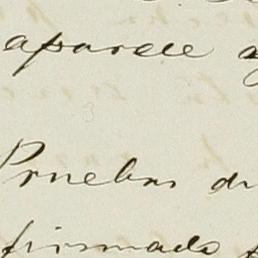 aparece
Pruebas de
firmado